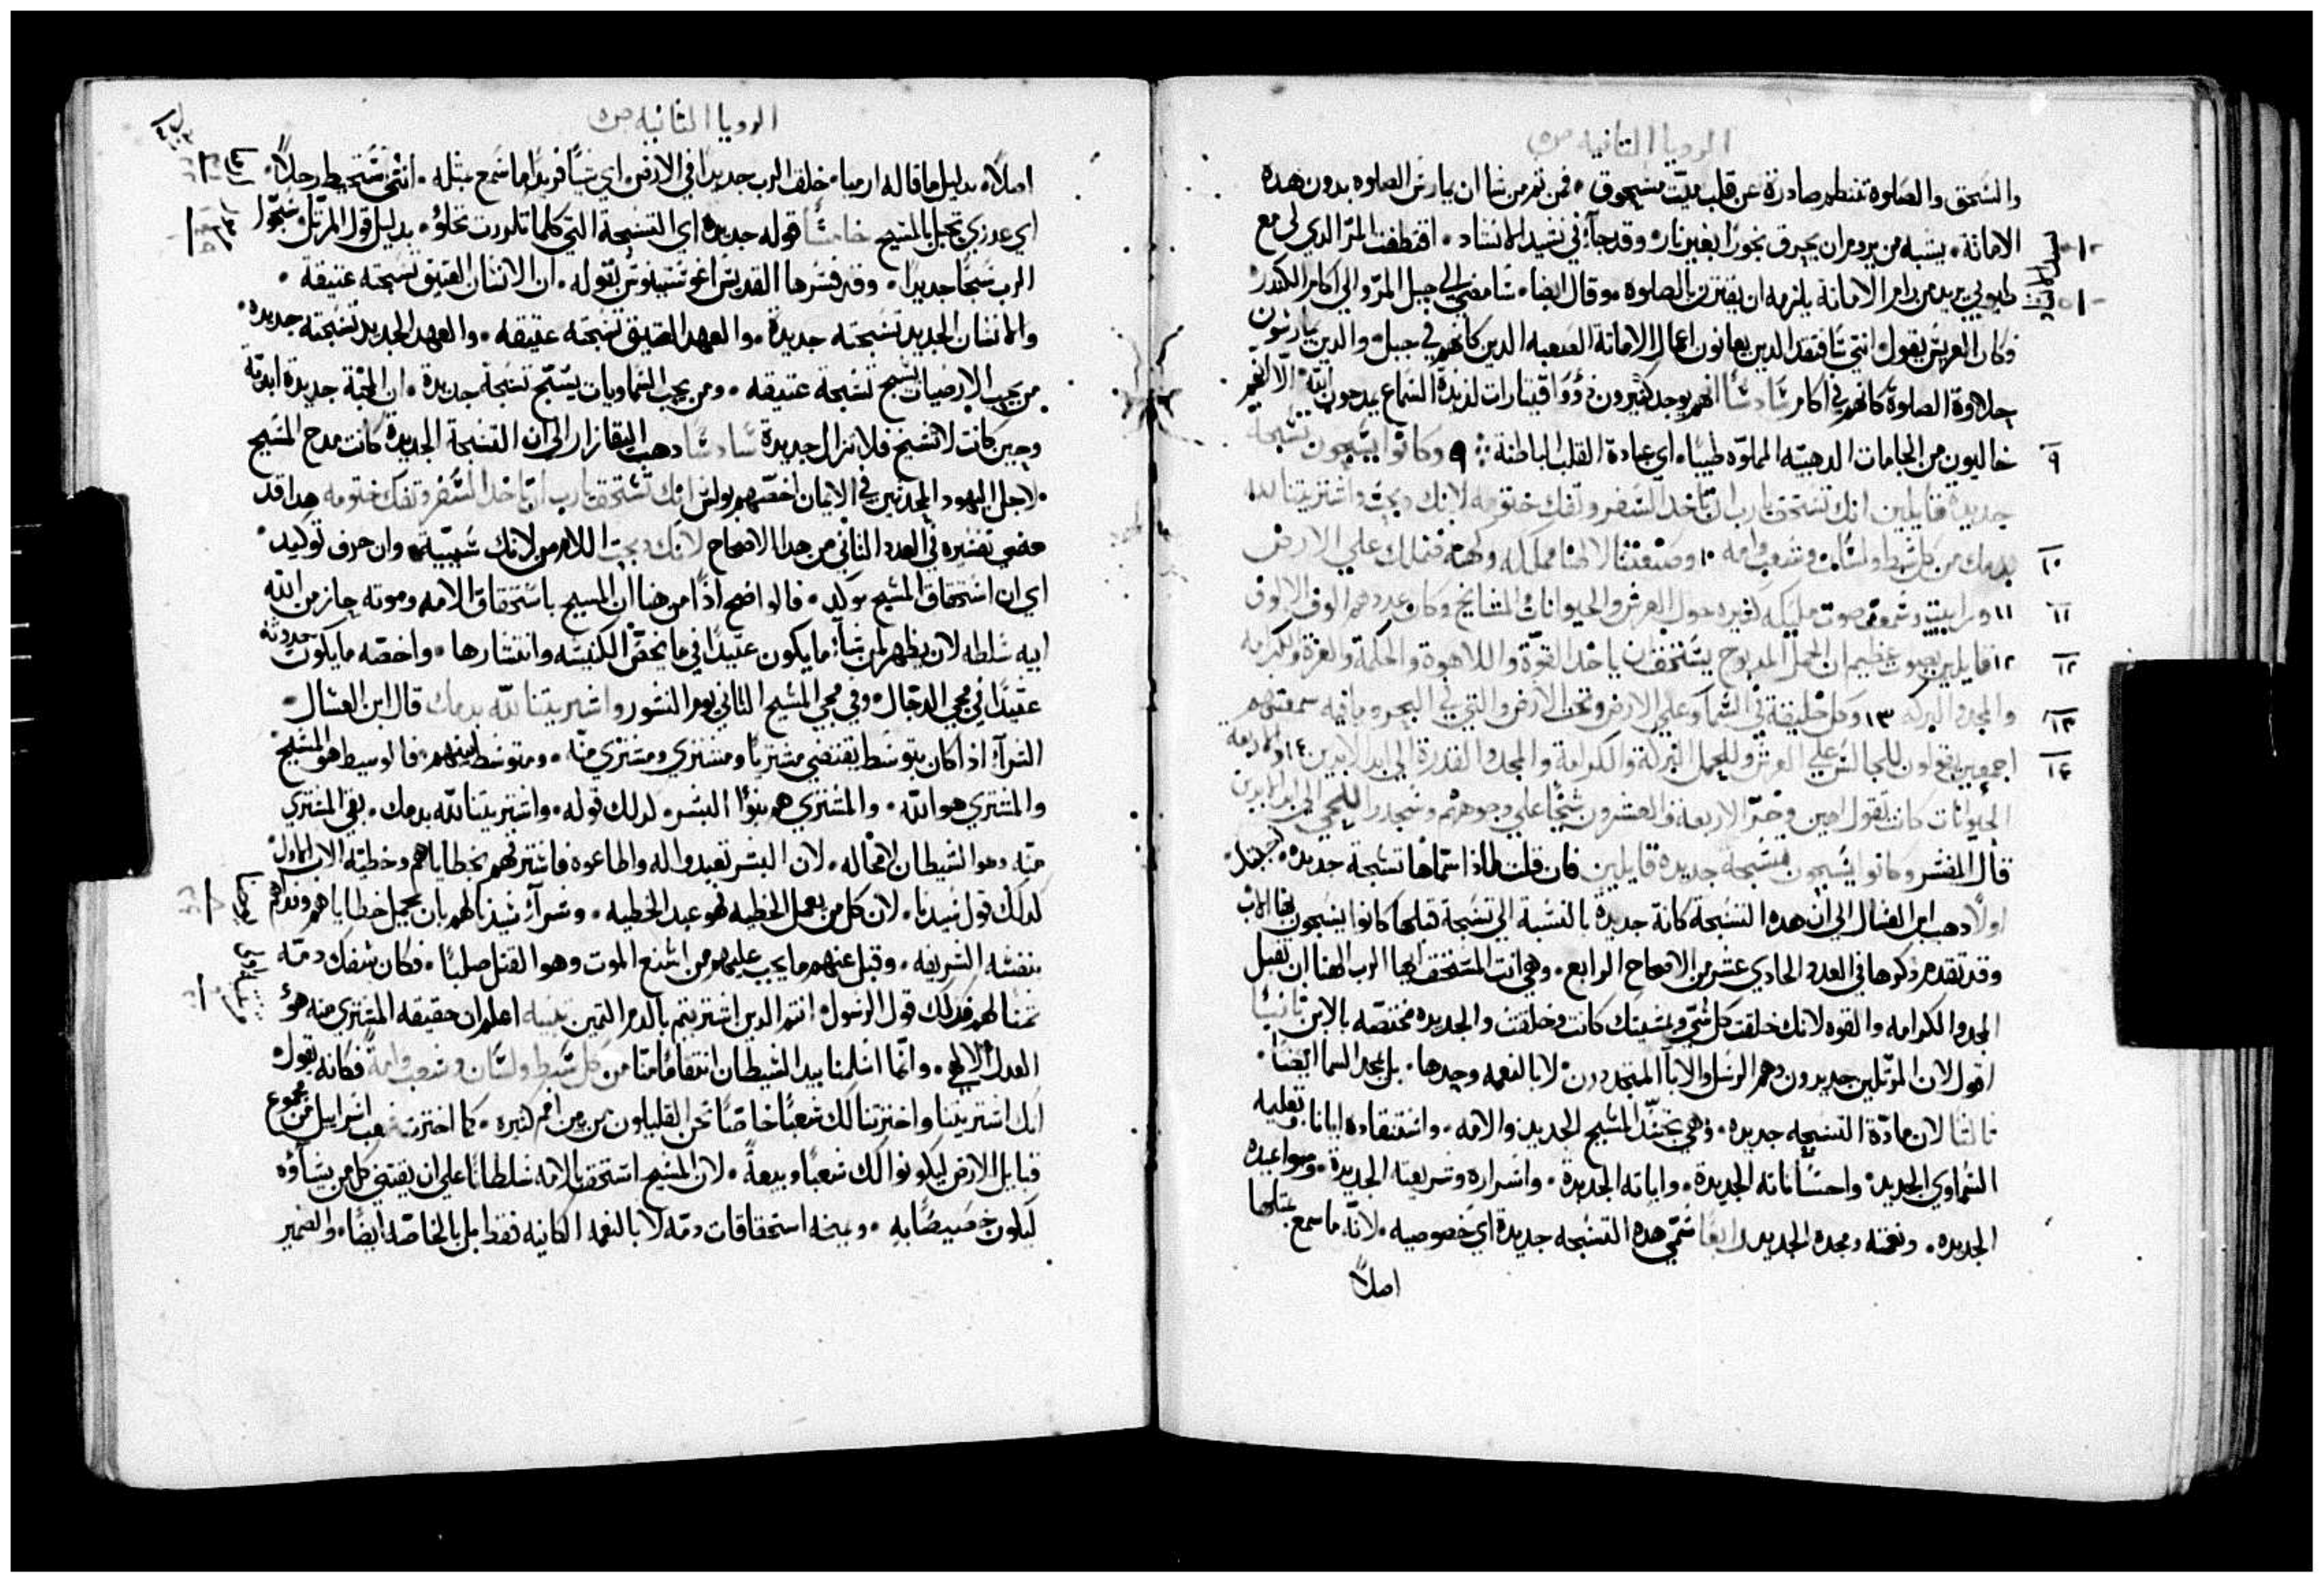 الرويا الثانيه ص ٥
والسحق والصلوة تنظم صادرة عن قلب ميت مسحوق ٠ فمن ثم من شا ان يمارس الصلوه بدون هده
الامانة ٠ يشبه من يروم ان يحرق بخورا بغير نار ٠ وقد جآ في نشيد الانشاد ٠ اقتطفت المر الدي لي مع
طيوبي يريد من رام الامانة يلزمه ان يقترن بالصلوه ٠ وقال ايضا ٠ سامضي الي جبل المر والي اكام الكندر
فكان العريس يقول ٠ انني سافتقد الدين يعانون اعمال الامانة الصعبه الدين كانهم في جبل ٠ والدين يمارسون
حلاوة الصلوة كانهم في اكام سادسا انهم يوجد كثيرون دوو قيتارات لديدة السماع يمدحون الله الا انهم
خاليون من الجامات الدهبيه المملوه طيبا ٠ اي عبادة القلب الباطنة ٩ وكانوا يسبحون تسبحة
جديدة قايلين انك تستحق يارب ان تاخد السفر وتفك ختومه لانك دبحت واشتريتنا لله
بدمك من كل سبط ولسان وشعب وامه ١٠ وصنعتنا لالهنا مملكه وكهنه فنملك علي الارض
١١ ورايت وسمعت صوت مليكه كثيره حول العرش والحيوانات والمشايخ وكان عددهم الوف الالوف
١٢ قايلين بصوت عظيم ان الحمل المدبوح يستحق ان ياخد القوة واللاهوة والحكمة والعزة والكرامه
والمجد والبركه ١٣ وكل خليقة في السما وعلي الارض وتحت الارض والتي في البحر وما فيه سمعتهم
اجمعين يقولون للجالس علي العرش وللحمل البركة والكرامة والمجد والقدرة الي ابد الابدين ١٤ والاربعه
الحيوانات كانت تقول امين وخر الاربعة والعشرون شيخا علي وجوههم وسجدوا للحي الي ابد الابدين
قال المفسر وكانوا يسبحون تسبحة جديده قايلين فان قلت لماذا سماها تسبحة جديده ٠ اجبتك ٠
اولا دهب ابن العسال الي ان هده التسبحة كانة جديدة بالنسبة الي تسبحة قبلها كانوا يسبحون بها الاب
وقد تقدم دكرها في العدد الحادي عشر من الاصحاح الرابع ٠ وهي انت المستحق ايها الرب الهنا ان تقبل
المجد والكرامه والقوه لانك خلقت كل شي وبمشيتك كانت وخلقت والجديده مختصه بالابن ثانيا
اقول لان المرتلين جديدون وهم الرسل والابآ المتجددون ٠ لا بالنعمه وحدها ٠ بل بمجد السما ايضا ٠
ثالثا لان مادة التسبحه جديده ٠ وهي تجسد المسيح الجديد والامه ٠ واستنقاده ايانا وتعليمه
السماوي الجديد ٠ واحساناته الجديدة ٠ واياته الجديدة ٠ واسراره وشريعته الجديدة ٠ ومواعيده
الجديده ٠ ونعمته ومجده الجديد رابعا سمي هده التسبحه جديدة اي خصوصيه ٠ لانه ما سمع بمثلها
اصلا
الرويا الثانيه ص ٥
اصلا ٠ بدليل ما قاله ارميا ٠ خلق الرب جديدا في الارض ٠ اي شيا فريدا ما سمع بمثله ٠ انثى ستحيط رجلا ٠
اي عدري تحبل بالمسيح خامسا قوله جديدة اي التسبحة التي كلما تلورت تحلو ٠ بدليل قول المرتل سبحوا
الرب سبحا جديدا ٠ وقد فسرها القديس اغوسطينوس بقوله ٠ ان الانسان العتيق تسبحته عتيقة ٠
والانسان الجديد تسبحته جديدة ٠ والعهد العتيق تسبحته عتيقه ٠ والعهد الجديد تسبحته جديده ٠
من يحب الارضيات يسبح تسبحة عتيقه ٠ ومن يحب السماويات يسبح تسبحة جديدة ٠ ان المحبة جديدة ابدية
وحين كانت لا تشيخ فلا تزال جديدة سادسا دهب اليقازار الي ان التسبحة الجديدة كانت مدح المسيح
لاجل اليهود المجددين في الايمان اخصهم بولس انك تستحق يارب ان تاخد السفر وتفك ختومه هدا قد
مضي تفسيره في العدد الثاني من هدا الاصحاح لانك دبحت اللام من لانك سببية ٠ وان حرف توكيد ٠
اي ان استحقاق المسيح موكد ٠ فالواضح ادا من هنا ان المسيح باستحقاق الامه وموته حاز من الله
ابيه سلطه لان يظهر لمن شآ ما يكون عتيدا في ما يخص الكنيسه وانتشارها ٠ واخصه ما يكون حدوثه
عتيدا في مجي الدجال ٠ وفي مجي المسيح الثاني يوم النشور واشتريتنا لله بدمك قال ابن العسال ٠
الشرآ ادا كان بتوسط يقتضي مشتريا ومشتري ومشتري منه ٠ ومتوسط بينهم ٠ فالوسيط هو المسيح ٠
والمشتري هو الله ٠ والمشتري هم بنوا البشر ٠ لدلك قوله ٠ واشتريتنا لله بدمك ٠ بقي المشتري
منه وهو الشيطان لا محاله ٠ لان البشر تعبدوا له واطاعوه فاشتراهم بخطاياهم وخطية الاب الاول ٠
كدلك قول سيدنا ٠ لان كل من يعمل الخطيه فهو عبد الخطيه ٠ وشرآ سيدنا لهم بان يحمل خطاياهم وفداهم
بنفسه الشريفه ٠ وقبل عنهم ما يجب عليهم من اشنع الموت وهو القتل صلبا ٠ فكان سفك دمه
ثمنا لهم فدلك قول الرسول ٠ انتم الدين اشتريتم بالدم الثمين تنبيه اعلم ان حقيقة المشتري منه هو
العدل الالهي ٠ وانما اسلمنا بيد الشيطان انتقاما منا من كل سبط ولسان وشعب وامة فكانه يقول ٠
انك اشتريتنا واخترتنا لك شعبا خاصا نحن القليلون من بين امم كثيره ٠ كما اخترت شعب اسراييل من مجموع
قبايل الارض ليكونوا لك شعبا وبيعة ٠ لان المسيح استحق بالامه سلطانا علي ان يقتني كل من يشاؤه
ليكون خصيصا به ٠ ويمنحه استحقاقات دمه لا بالنعمه الكافيه فقط بل بالخاصه ايضا ٠ والضمير